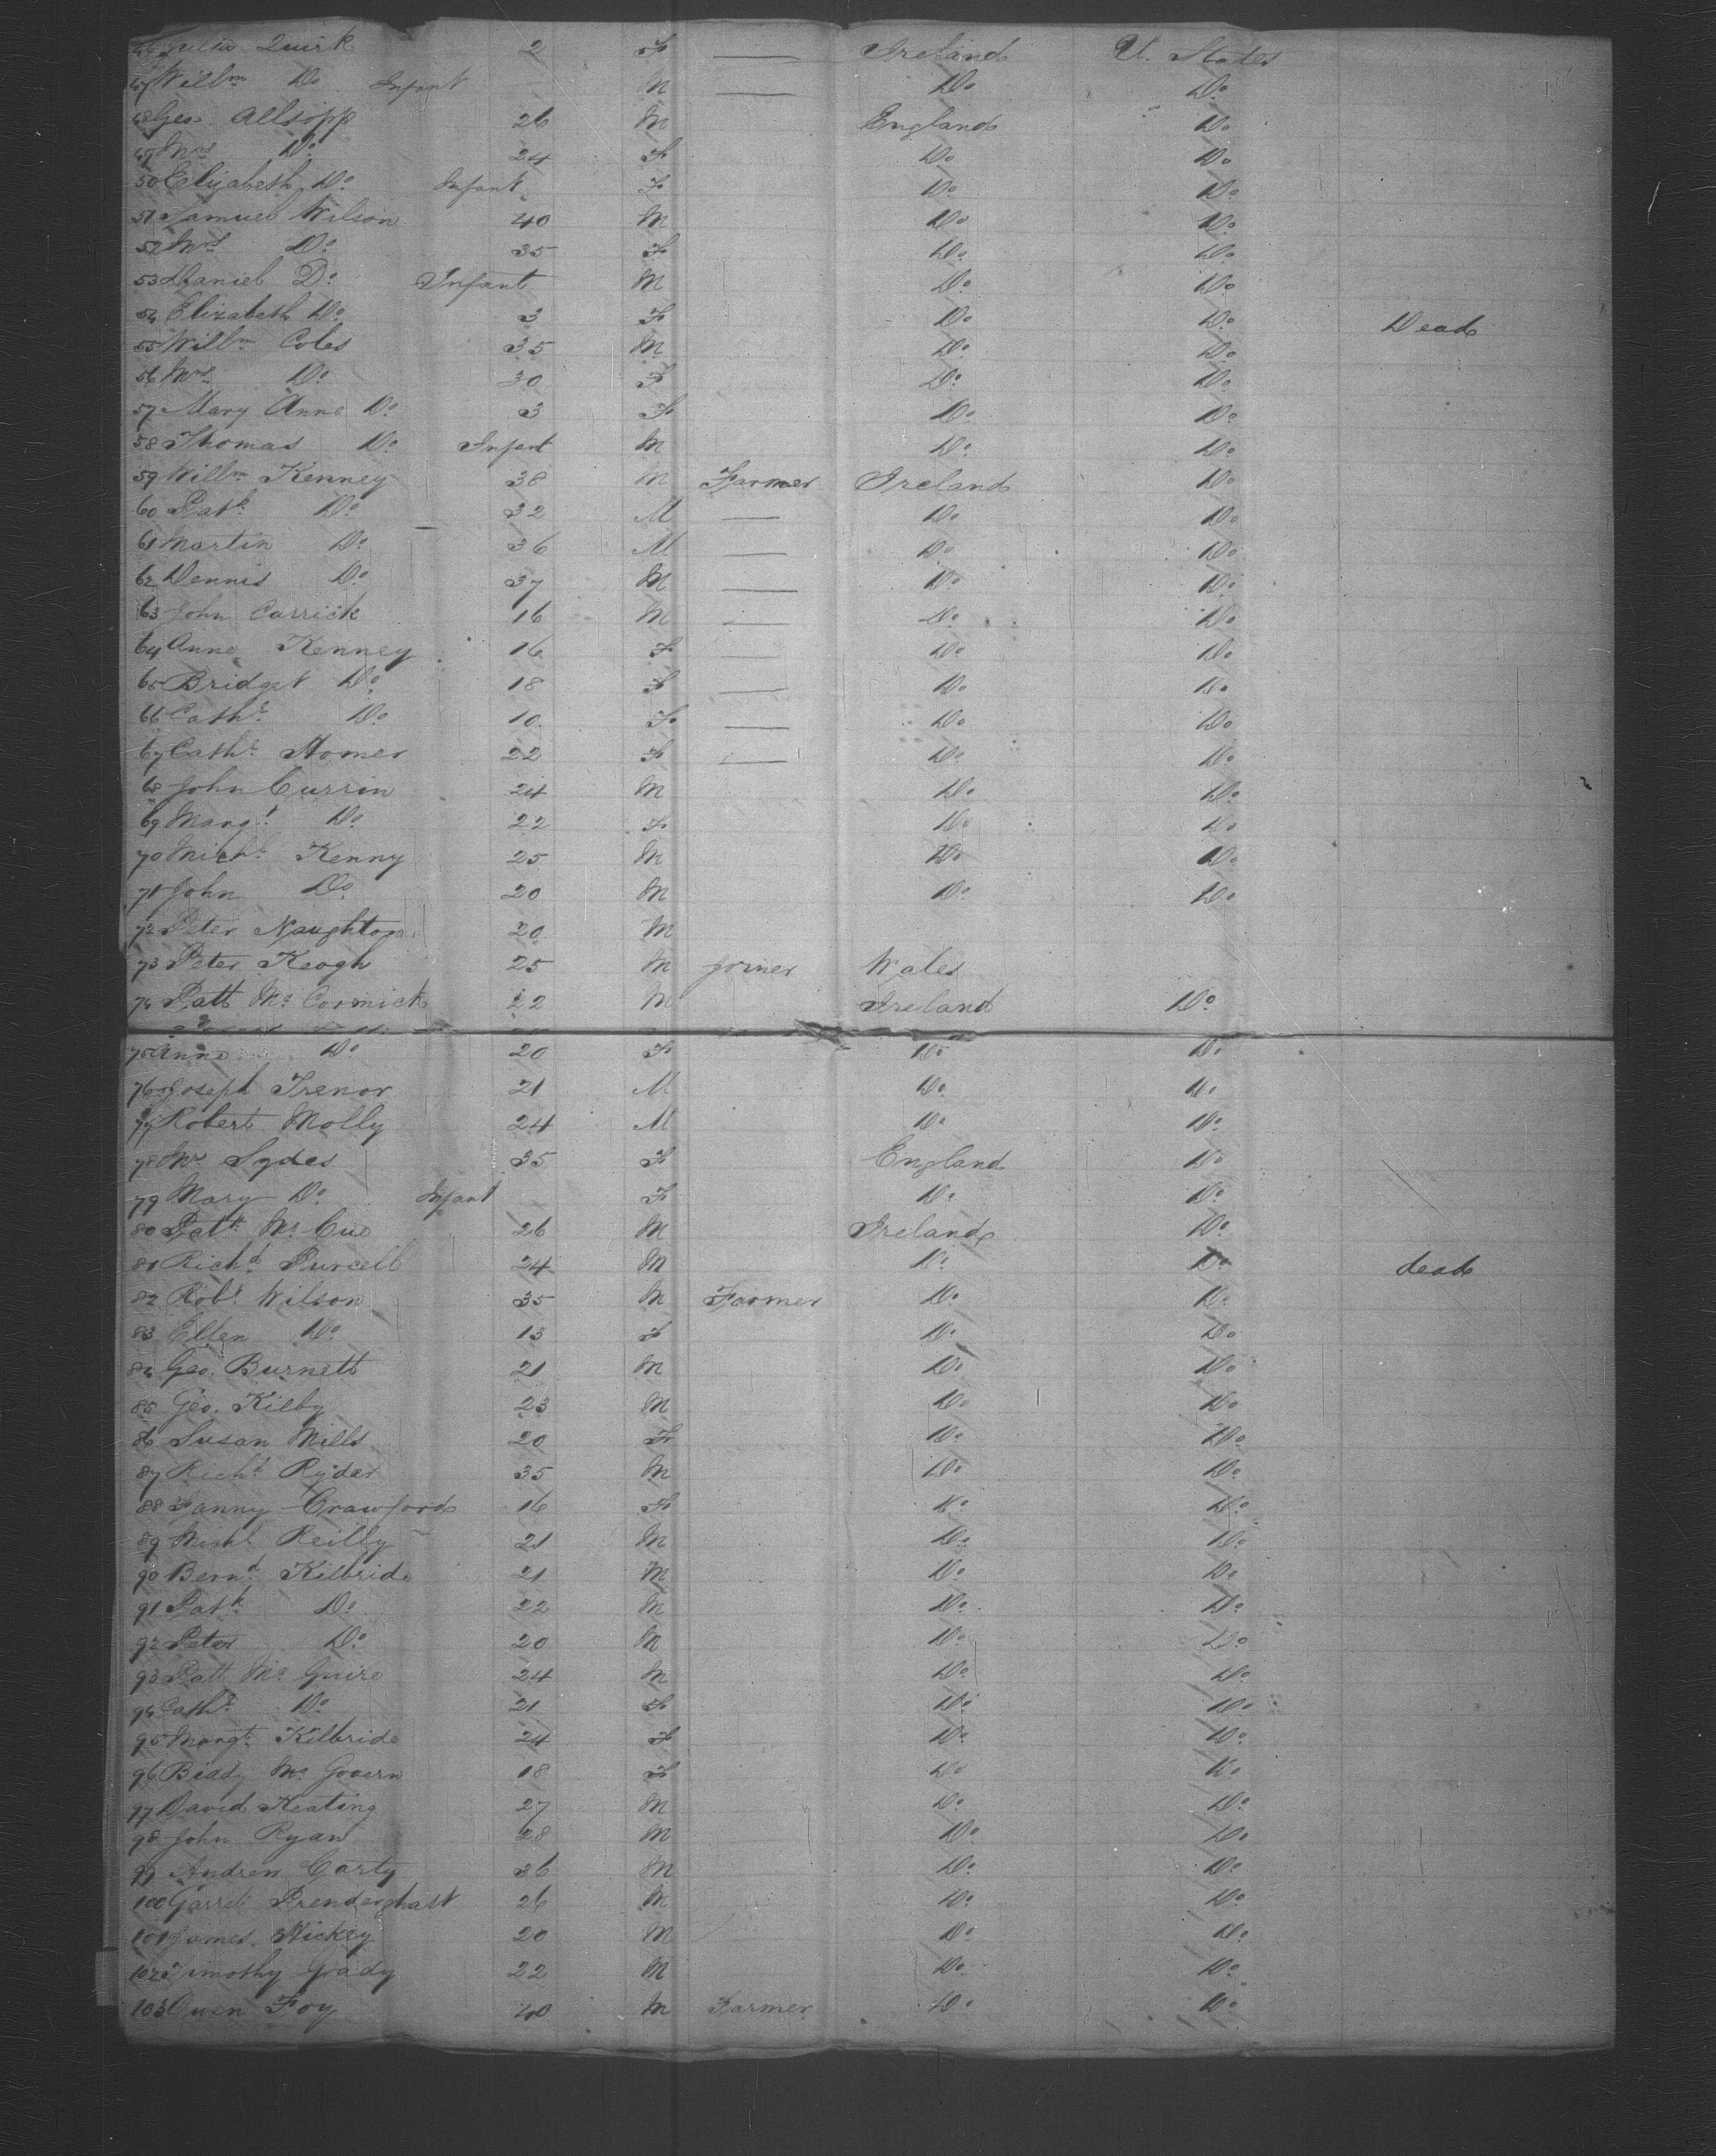 46 Julia Quirk 2 F — Ireland U. States
47 Willm Do Infant M — Do Do
48 Geo. Allsopp 26 M England Do
49 Mrs Do 24 F Do Do
50 Elizabeth Do Infant F Do Do
51 Samuel Wilson 40 M Do Do
52 Mrs Do 35 F Do Do
53 Daniel Do Infant M Do Do
54 Elizabeth Do 3 F Do Do Dead
55 Willm Coles 35 M Do Do
56 Mrs Do 30 F Do Do
57 Mary Anne Do 3 F Do Do
58 Thomas Do Infant M Do Do
59 Willm Kenney 38 M Farmer Ireland Do
60 Patk Do 32 M — Do Do
61 Martin Do 36 M — Do Do
62 Dennis Do 37 M — Do Do
63 John Carrick 16 M — Do Do
64 Anne Kenney 16 F — Do Do
65 Bridget Do 18 F — Do Do
66 Cathe Do 10 F — Do Do
67 Cathe Homer 22 F — Do Do
68 John Currin 24 M Do Do
69 Margt Do 22 F Do Do
70 Michl Kenny 25 M Do Do
71 John Do 20 M Do Do
72 Peter Naughton 20 M
73 Peter Keogh 25 M Joiner Wales
74 Patt McCormick 22 M Ireland Do
75 Anne Do 20 F Do Do
76 Joseph Trenor 21 M Do Do
77 Robert Molly 24 M Do Do
78 Mrs Sydes 35 F England Do
79 Mary Do Infant F Do Do
80 Patk McCue 26 M Ireland Do
81 Richd Purcell 24 M Do Do dead
82 Robt Wilson 35 M Farmer Do Do
83 Ellen Do 13 F Do Do
84 Geo. Burnett 21 M Do Do
85 Geo. Kilby 23 M Do Do
86 Susan Mills 20 F Do Do
87 Richd Ryder 35 M Do Do
88 Fanny Crawford 16 F Do Do
89 Michl Reilly 21 M Do Do
90 Bernd Kilbride 21 M Do Do
91 Patk Do 22 M Do Do
92 Peter Do 20 M Do Do
93 Patt McGuire 24 M Do Do
94 Cathe Do 21 F Do Do
95 Margt Kilbride 24 F Do Do
96 Biddy McGovern 18 F Do Do
97 David Keating 27 M Do Do
98 John Ryan 28 M Do Do
99 Andrew Carty 36 M Do Do
100 Garret Prenderghast 26 M Do Do
101 James Hickey 20 M Do Do
102 Timothy Grady 22 M Do Do
103 Owen Foy 40 M Farmer Do Do